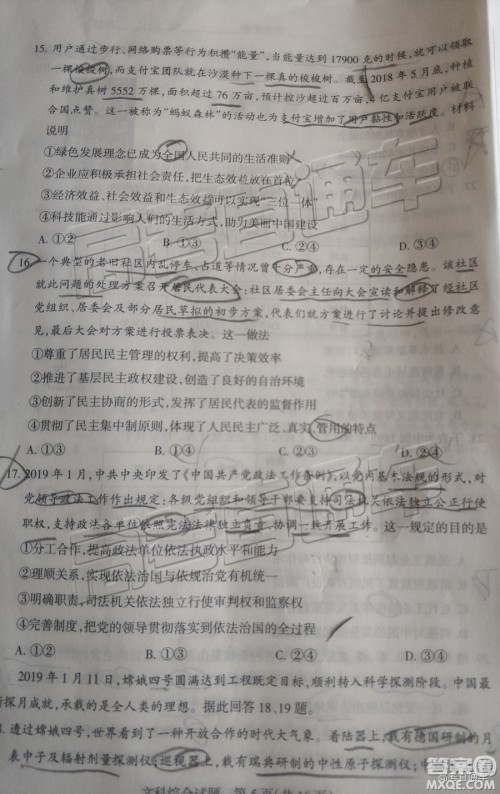 15. 用户通过步行、网络购票等行为积攒“能量”，当能量达到17900克的时候，就可以领取
一棵梭梭树，而支付宝团队就在沙漠种下一棵真的梭梭树。截至2018年5月底，种植
和维护真树5552万棵，面积超过76万亩，预计控沙超过百万亩，4亿支付宝用户被联
合国点赞。这一被称为“蚂蚁森林”的活动也为支付宝增加了用户黏性和活跃度。材料
说明
①绿色发展理念已成为全国人民共同的生活准则
②企业应积极承担社会责任，把生态效益放在首位
③经济效益、社会效益和生态效益可以实现“三位一体”
④科技能通过影响人们的生活方式，助力美丽中国建设
A. ①② B. ①④ C. ②③ D. ③④
16. 一个典型的老旧社区内乱停车、占道等情况曾十分严重，存在一定的安全隐患。该社区
就此问题的处理方案召开居民代表大会：社区居委会主任向大会宣读和解释了经社区
党组织、居委会及部分居民草拟的初步方案，代表们就方案进行了讨论并提出修改意
见，最后大会对方案进行投票表决。这一做法
①尊重了居民民主管理的权利，提高了决策效率
②推进了基层民主政权建设，创造了良好的自治环境
③创新了民主协商的形式，发挥了居民代表的监督作用
④贯彻了民主集中制原则，体现了人民民主广泛、真实、管用的特点
A. ①③ B. ①④ C. ②③ D. ②④
17. 2019年1月，中共中央印发了《中国共产党政法工作条例》，以党内基本法规的形式，对
党领导政法工作作出规定：各级党组织和领导干部要支持司法机关依法独立公正行使
职权，支持政法各单位依照宪法法律独立负责、协调一致开展工作。这一规定的目的是
①分工合作，提高政法单位依法执政水平和能力
②理顺关系，实现依法治国与依规治党有机统一
③明确职责，司法机关依法独立行使审判权和监察权
④完善制度，把党的领导贯彻落实到依法治国的全过程
A. ①② B. ①③ C. ②④ D. ③④
2019年1月11日，嫦娥四号圆满达到工程既定目标，顺利转入科学探测阶段。中国最
新探月成就，是全人类的理想。据此回答18、19题。
透过嫦娥四号，世界看到了一种开放合作的时代大气象。着陆器上，载有德国研制的月
表中子及辐射剂量探测仪；巡视器上，载有瑞典研制的中性原子探测仪；
文科综合试题
高考直通车
答案圈